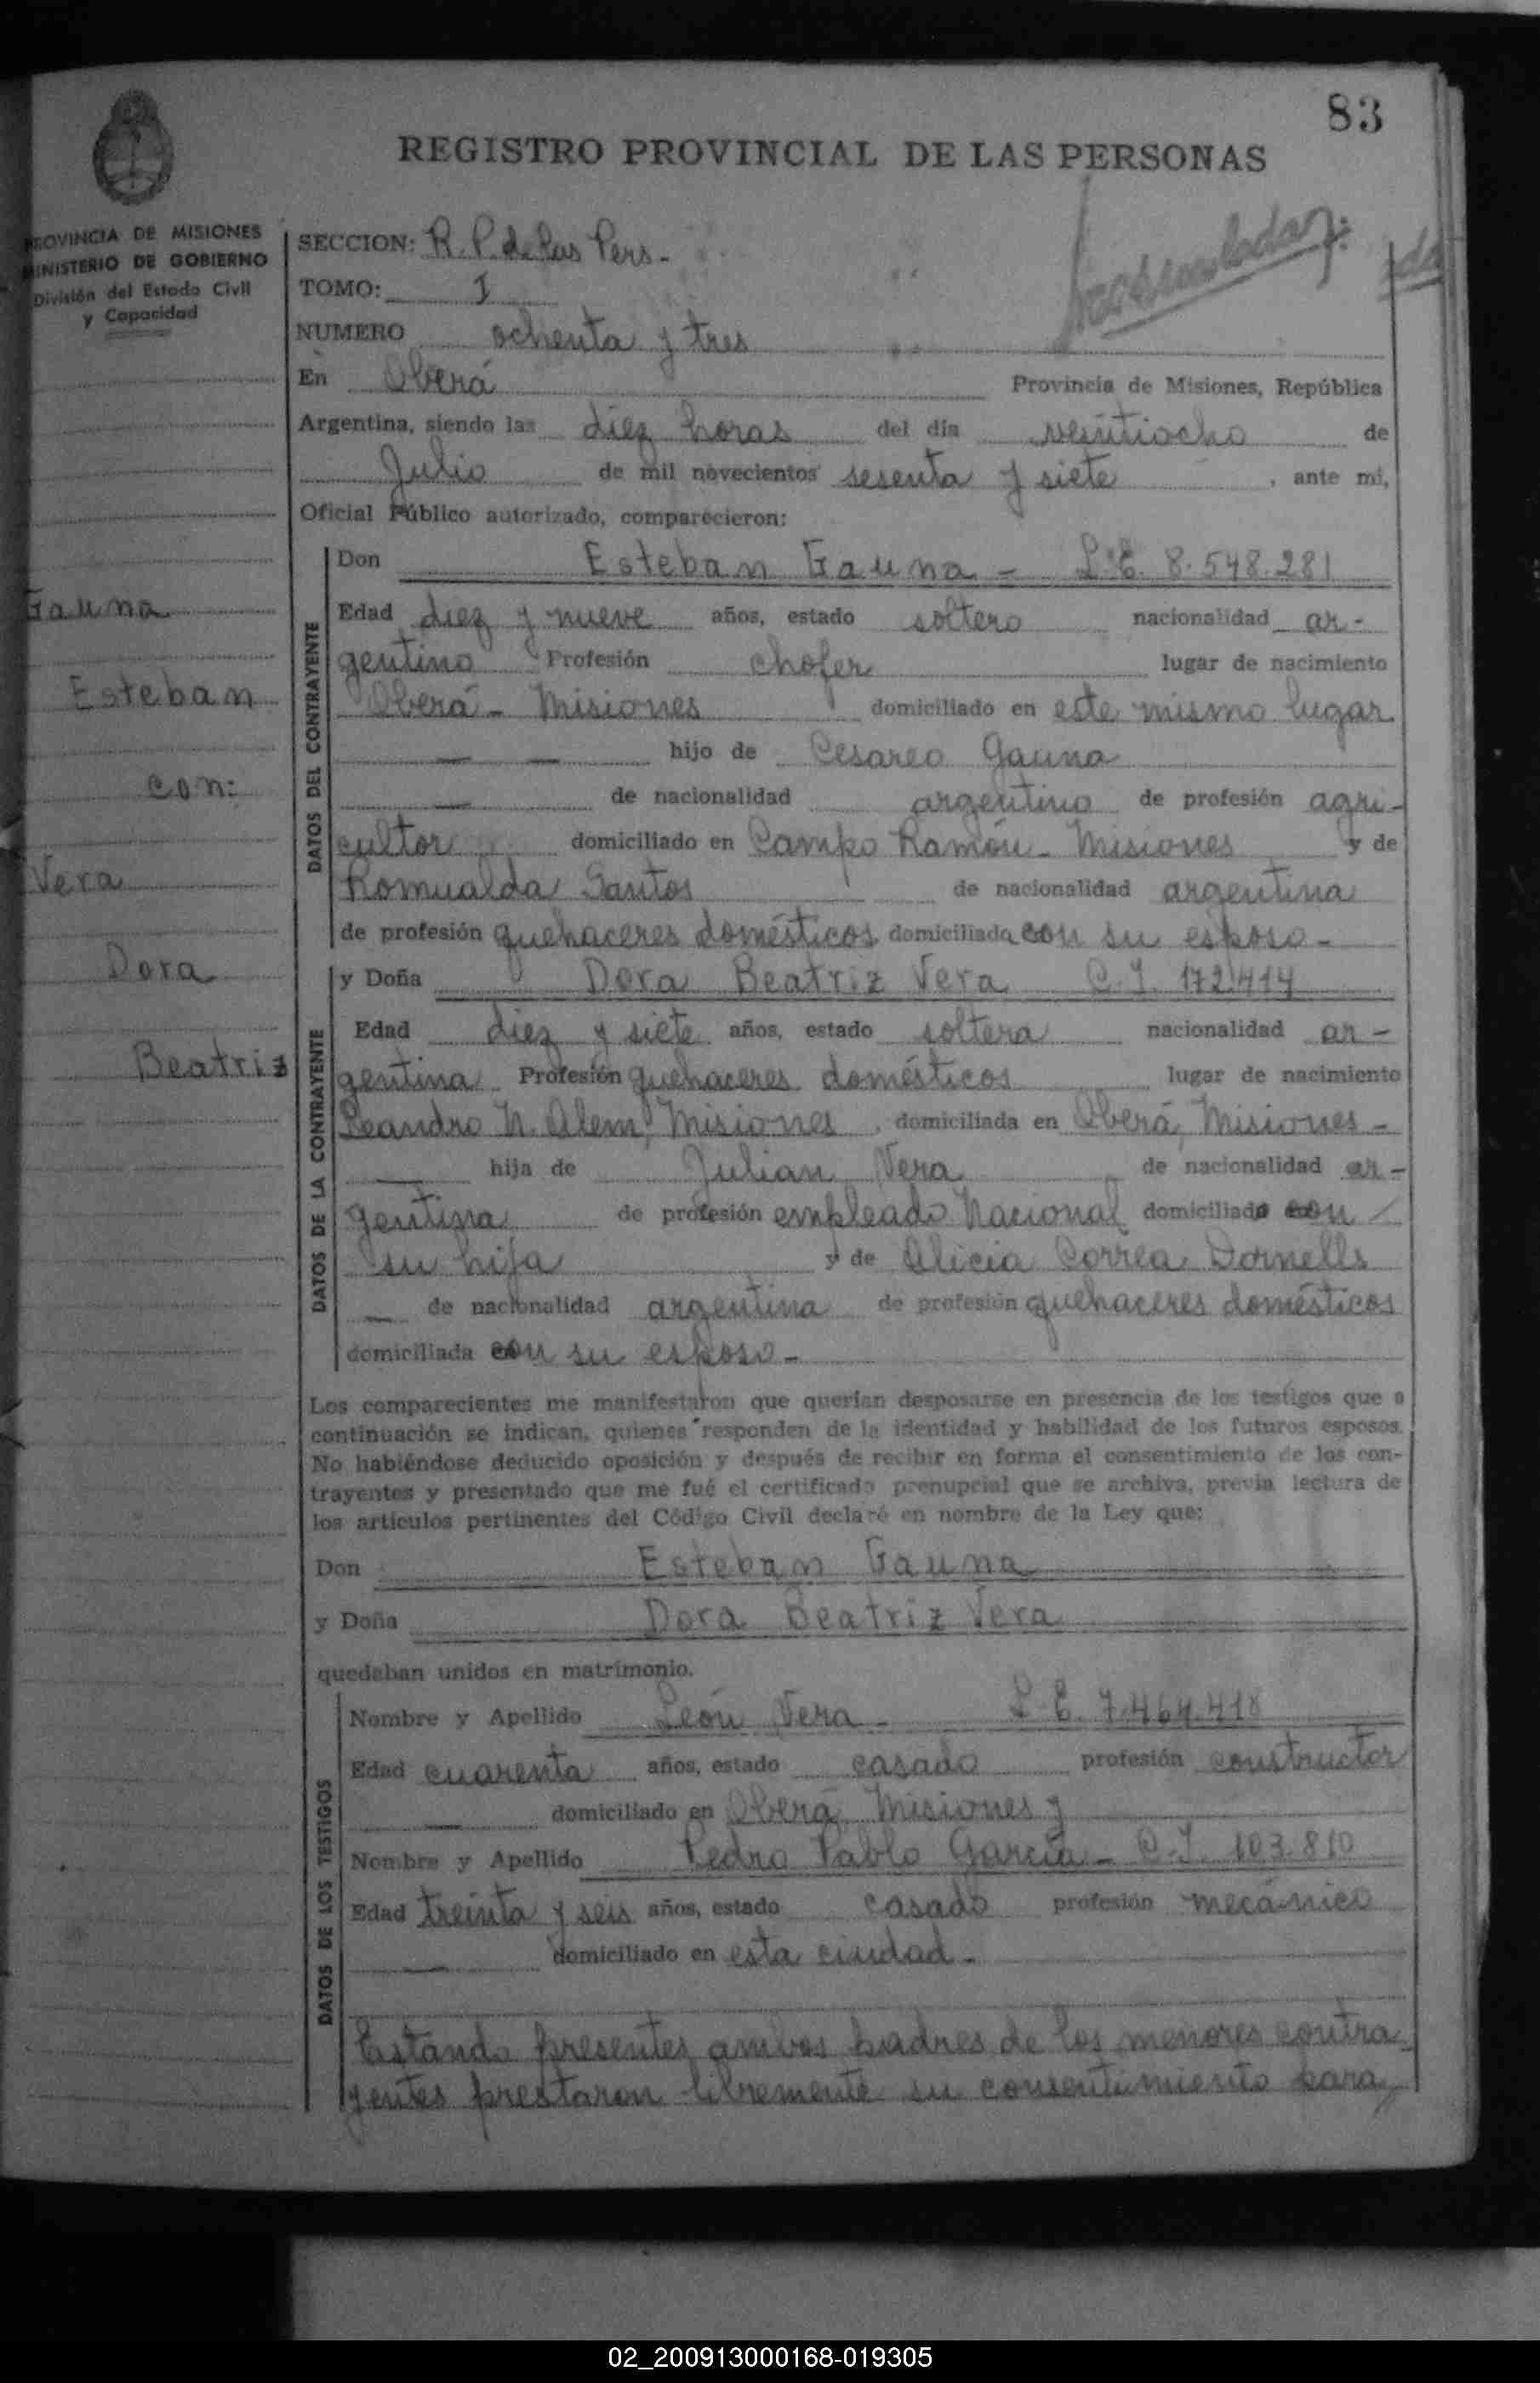 83
REGISTRO PROVINCIAL DE LAS PERSONAS
PROVINCIA DE MISIONES
MINISTERIO DE GOBIERNO
División del Estado Civil
y Capacidad
SECCION: R. P. de las Pers.-
TOMO: I
NUMERO ochenta y tres
En Oberá Provincia de Misiones, República
Argentina, siendo las diez horas del día veintiocho de
Julio de mil novecientos sesenta y siete, ante mi,
Oficial Público autorizado, comparecieron:
Gauna
Esteban
con:
Vera
Dora
Beatriz
DATOS DEL CONTRAYENTE
Don Esteban Gauna - L.E. 8.548.281
Edad diez y nueve años, estado soltero nacionalidad ar-
gentino Profesión chofer lugar de nacimiento
Oberá - Misiones domiciliado en este mismo lugar
— — hijo de Cesareo Gauna
— de nacionalidad argentino de profesión agri-
cultor domiciliado en Campo Ramón - Misiones y de
Romualda Santos de nacionalidad argentina
de profesión quehaceres domésticos domiciliada con su esposo-
DATOS DE LA CONTRAYENTE
y Doña Dora Beatriz Vera C.I. 172.414
Edad diez y siete años, estado soltera nacionalidad ar-
gentina Profesión quehaceres domésticos lugar de nacimiento
Leandro N. Alem, Misiones, domiciliada en Oberá, Misiones-
— hija de Julian Vera de nacionalidad ar-
gentina de profesión empleado Nacional domiciliado con
su hija y de Alicia Correa Dornells
— de nacionalidad argentina de profesión quehaceres domésticos
domiciliada con su esposo-
Los comparecientes me manifestaron que querían desposarse en presencia de los testigos que a
continuación se indican, quienes responden de la identidad y habilidad de los futuros esposos.
No habiéndose deducido oposición y después de recibir en forma el consentimiento de los con-
trayentes y presentado que me fué el certificado prenupcial que se archiva, previa lectura de
los artículos pertinentes del Código Civil declaré en nombre de la Ley que:
Don Esteban Gauna
y Doña Dora Beatriz Vera
quedaban unidos en matrimonio.
DATOS DE LOS TESTIGOS
Nombre y Apellido León Vera - L.E. 7.464.418
Edad cuarenta años, estado casado profesión constructor
— domiciliado en Oberá Misiones y
Nombre y Apellido Pedro Pablo García - C.I. 103.810
Edad treinta y seis años, estado casado profesión mecánico
— domiciliado en esta ciudad.-
Estando presentes ambos padres de los menores contra
yentes prestaron libremente su consentimiento para
02_200913000168-019305